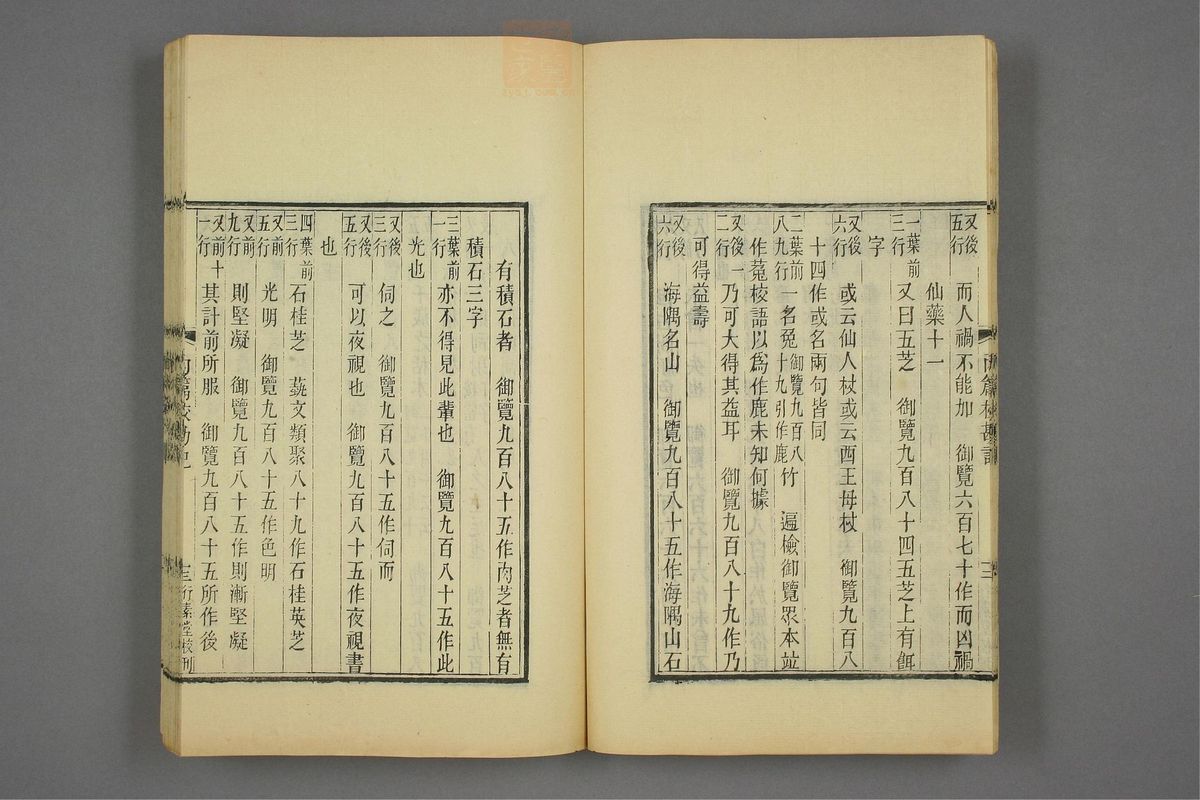 又後五行 而人禍不能加 御覽六百七十作而凶禍
仙藥十一
一葉前三行 又曰五芝 御覽九百八十四五芝上有餌
字
又後六行 或云仙人杖或云西王母杖 御覽九百八
十四作或名兩句皆同
二葉前八九行 一名菟 御覽九百八十九引作鹿竹 遍檢御覽眾本竝
作菟校語以爲作鹿未知何據
又後二行 一乃可大得其益耳 御覽九百八十九作乃
可得益壽
又後六行 海隅名山 御覽九百八十五作海隅山石
內篇校勘記
三
有積石者 御覽九百八十五作肉芝者無有
積石三字
三葉前一行 亦不得見此輩也 御覽九百八十五作此
光也
又後三行 伺之 御覽九百八十五作伺而
又後五行 可以夜視也 御覽九百八十五作夜視書
也
四葉前三行 石桂芝 蓺文類聚八十九作石桂英芝
又前五行 光明 御覽九百八十五作色明
又前九行 則堅凝 御覽九百八十五作則漸堅凝
又前十一行 其計前所服 御覽九百八十五所作後
內篇校勘記
三 行素堂校刊